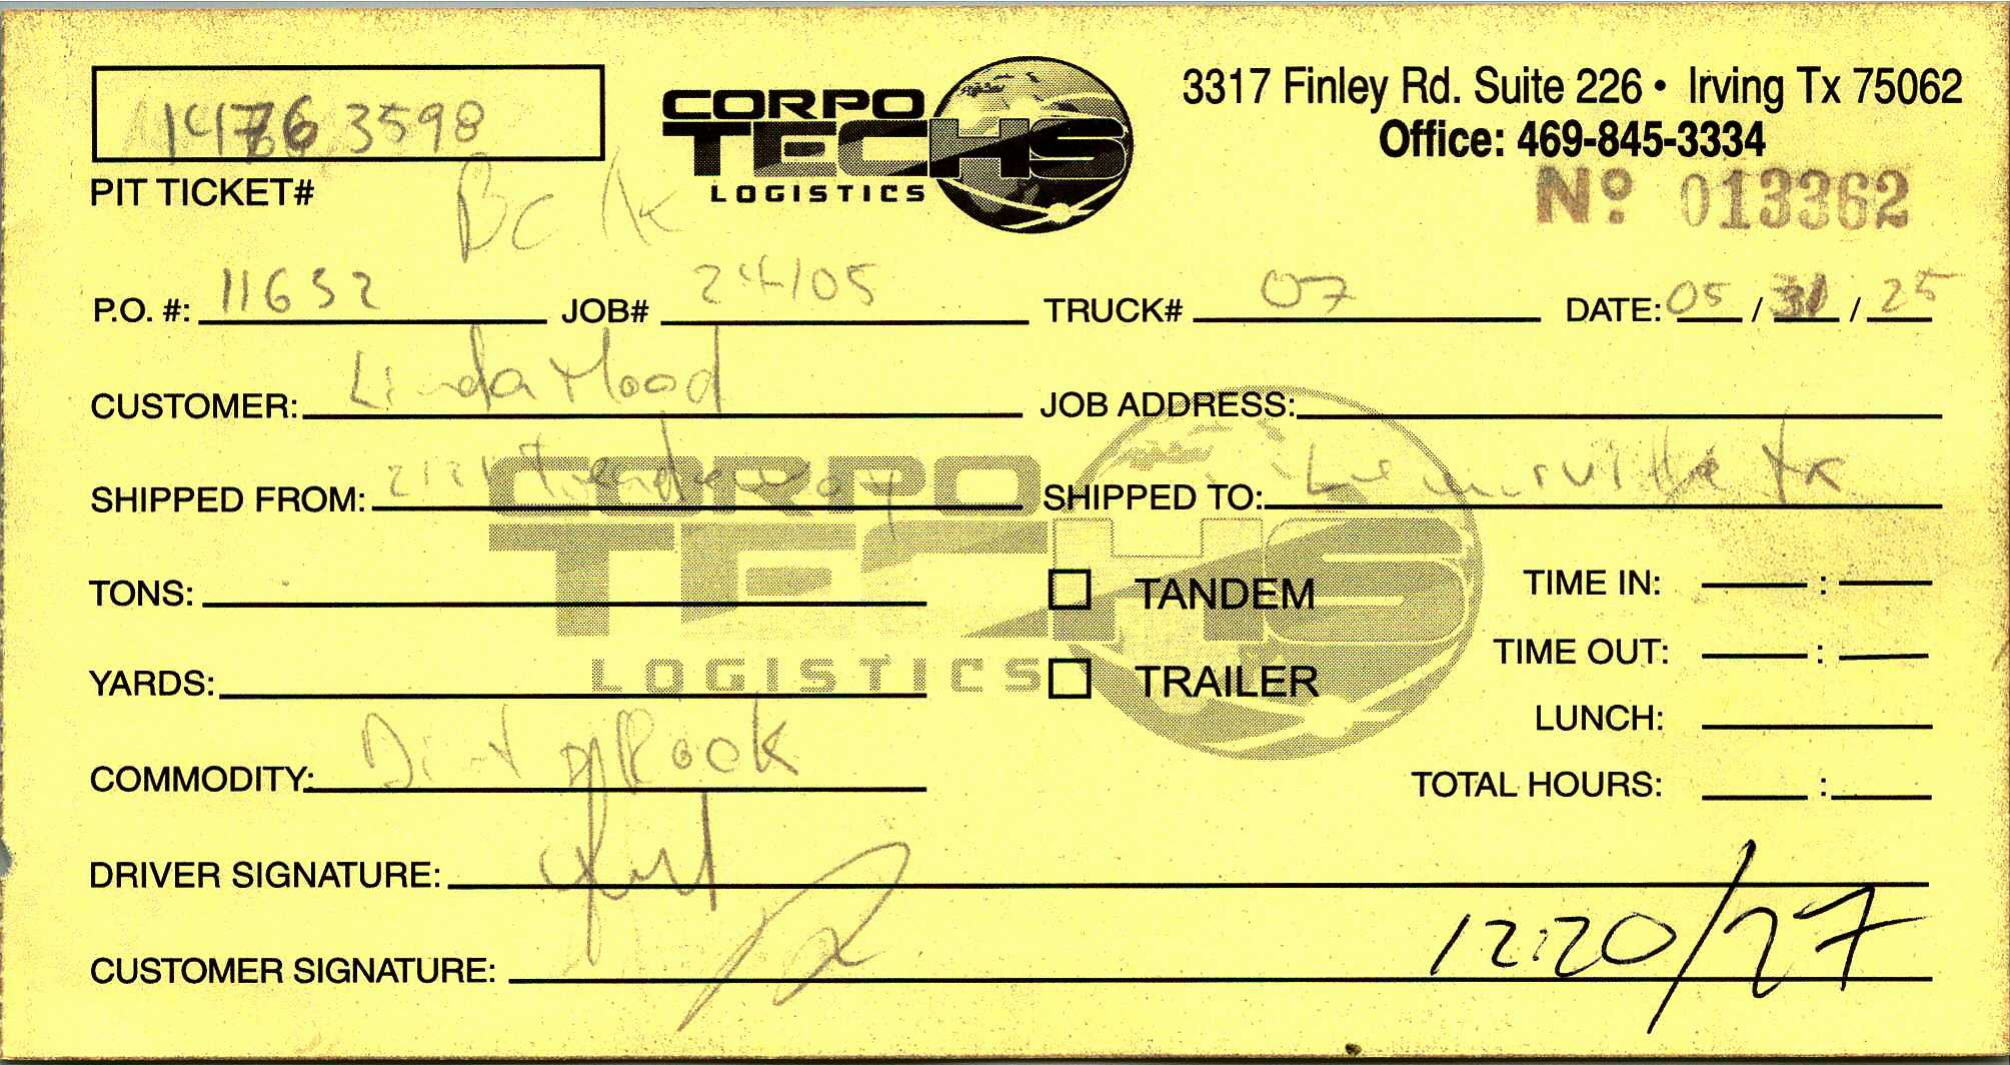 14763598
PIT TICKET#
CORPO
TECHS
LOGISTICS
3317 Finley Rd. Suite 226 • Irving Tx 75062
Office: 469-845-3334
Nº 013362
P.O. #: 11632 JOB# 24105 TRUCK# 07 DATE: 05 / 31 / 25
CUSTOMER: Linda Mood JOB ADDRESS:
SHIPPED FROM: 2121 SHIPPED TO: Lewisville tx
CORPO
TECHS
LOGISTICS
TONS: TANDEM TIME IN: :
YARDS: TRAILER TIME OUT: :
LUNCH:
COMMODITY: Dirt Rock TOTAL HOURS: :
DRIVER SIGNATURE:
CUSTOMER SIGNATURE: 12:20/27